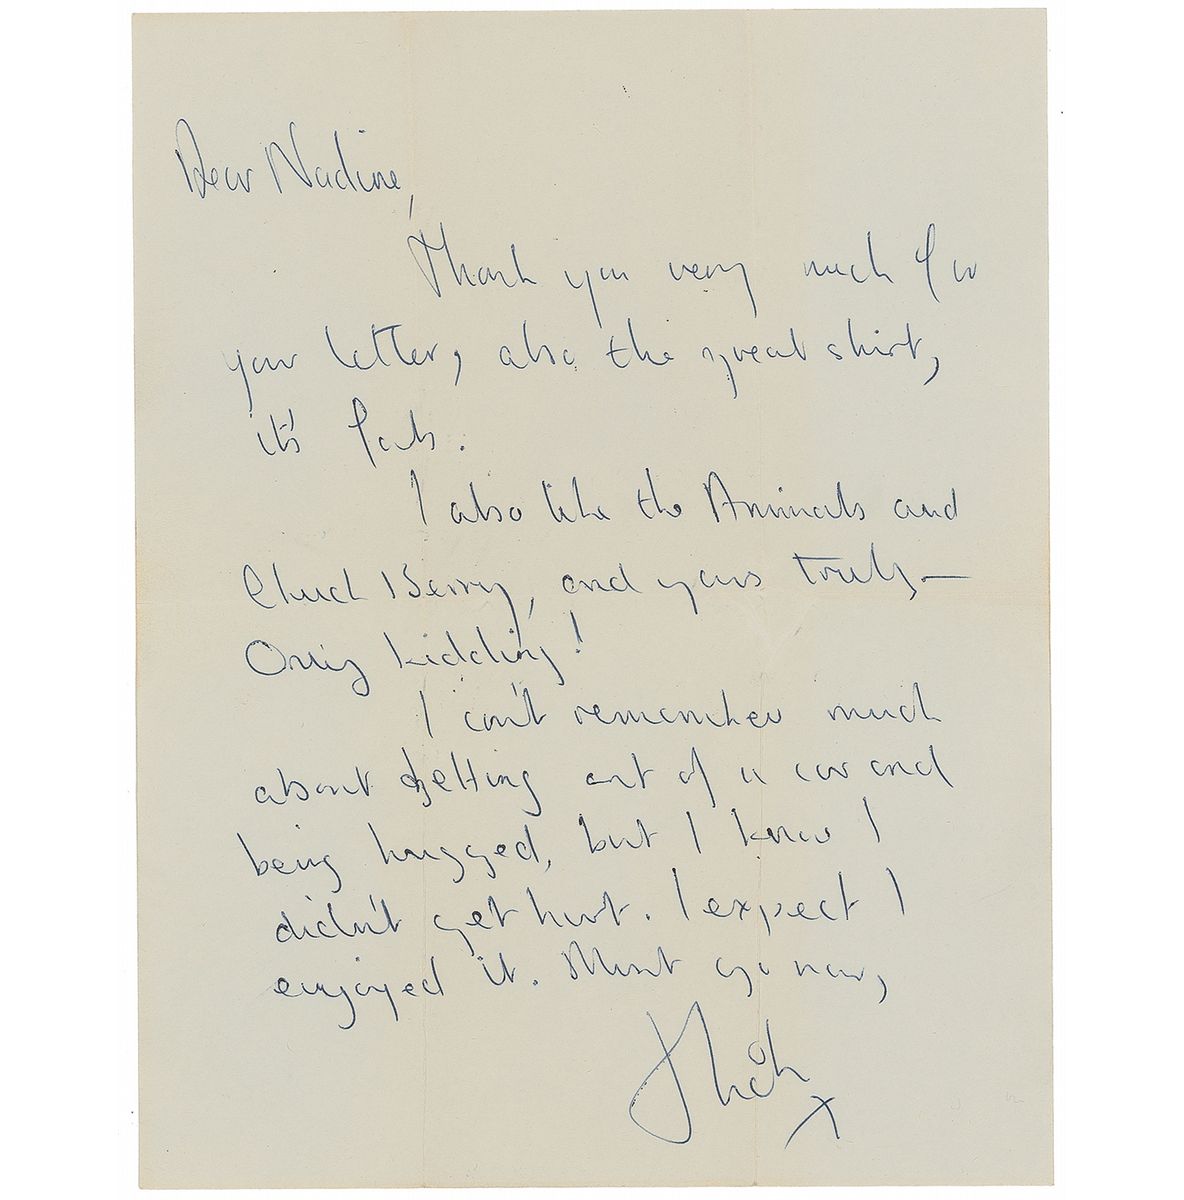 Dear Nadine,
Thank you very much for
your letter, also the great shirt,
it's fab.
I also like the Animals and
Chuck Berry, and yours truly —
Only kidding!
I can't remember much
about getting out of a car and
being hugged, but I know I
didn't get hurt. I expect I
enjoyed it. Must go now,
Mick
X